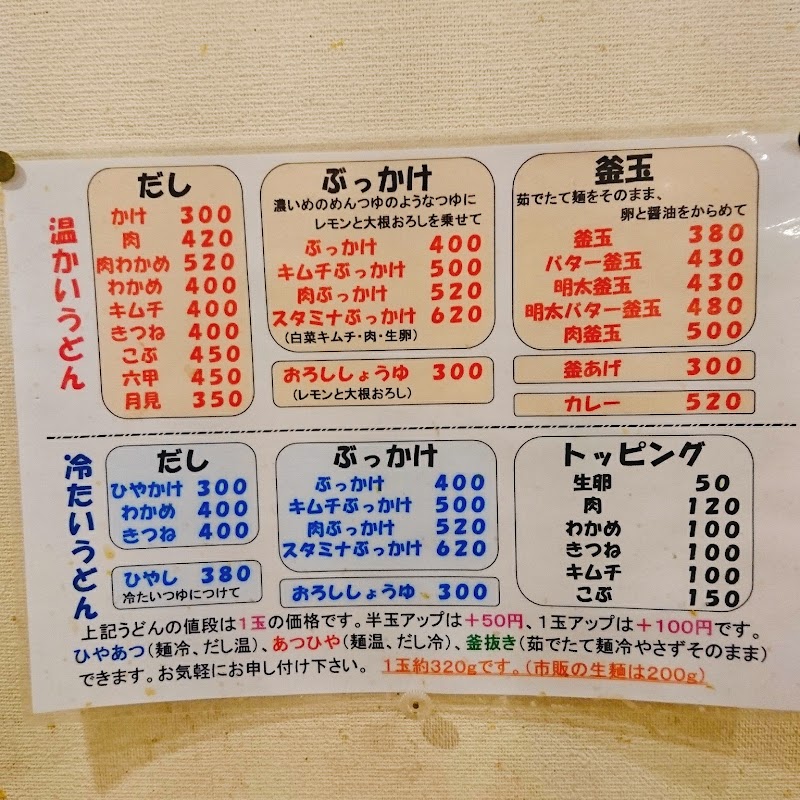 温かいうどん
だし
かけ 300
肉 420
肉わかめ 520
わかめ 400
キムチ 400
きつね 400
こぶ 450
六甲 450
月見 350
ぶっかけ
濃いめのめんつゆのようなつゆに
レモンと大根おろしを乗せて
ぶっかけ 400
キムチぶっかけ 500
肉ぶっかけ 520
スタミナぶっかけ 620
(白菜キムチ・肉・生卵)
おろししょうゆ 300
(レモンと大根おろし)
釜玉
茹でたて麺をそのまま、
卵と醤油をからめて
釜玉 380
バター釜玉 430
明太釜玉 430
明太バター釜玉 480
肉釜玉 500
釜あげ 300
カレー 520
冷たいうどん
だし
ひやかけ 300
わかめ 400
きつね 400
ひやし 380
冷たいつゆにつけて
ぶっかけ
ぶっかけ 400
キムチぶっかけ 500
肉ぶっかけ 520
スタミナぶっかけ 620
おろししょうゆ 300
トッピング
生卵 50
肉 120
わかめ 100
きつね 100
キムチ 100
こぶ 150
上記うどんの値段は1玉の価格です。半玉アップは+50円、1玉アップは+100円です。
ひやあつ(麺冷、だし温)、あつひや(麺温、だし冷)、釜抜き(茹でたて麺冷やさずそのまま)
できます。お気軽にお申し付け下さい。 1玉約320gです。(市販の生麺は200g)